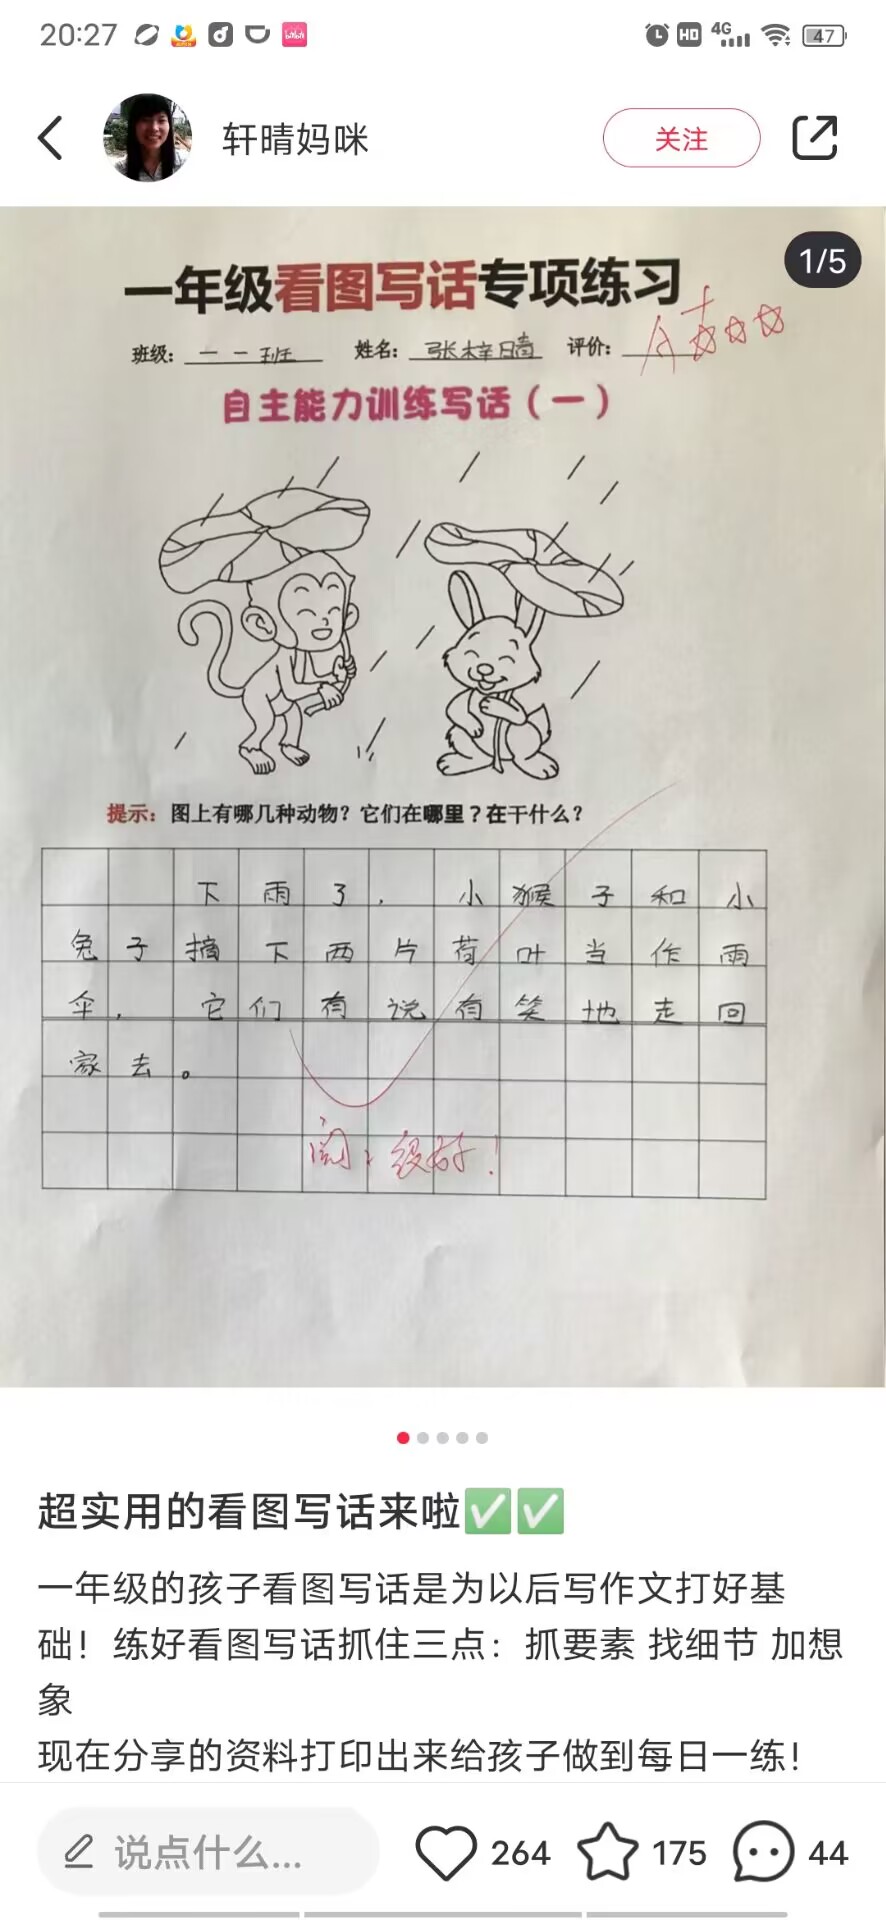 20:27 HD 4G 47
轩晴妈咪 关注
1/5
一年级看图写话专项练习
班级：一一班 姓名：张梓晴 评价：A+
自主能力训练写话（一）
提示：图上有哪几种动物？它们在哪里？在干什么？
下雨了，小猴子和小
兔子摘下两片荷叶当作雨
伞，它们有说有笑地走回
家去。
阅：很好！
超实用的看图写话来啦✅✅
一年级的孩子看图写话是为以后写作文打好基
础！练好看图写话抓住三点：抓要素 找细节 加想
象
现在分享的资料打印出来给孩子做到每日一练！
说点什么... 264 175 44